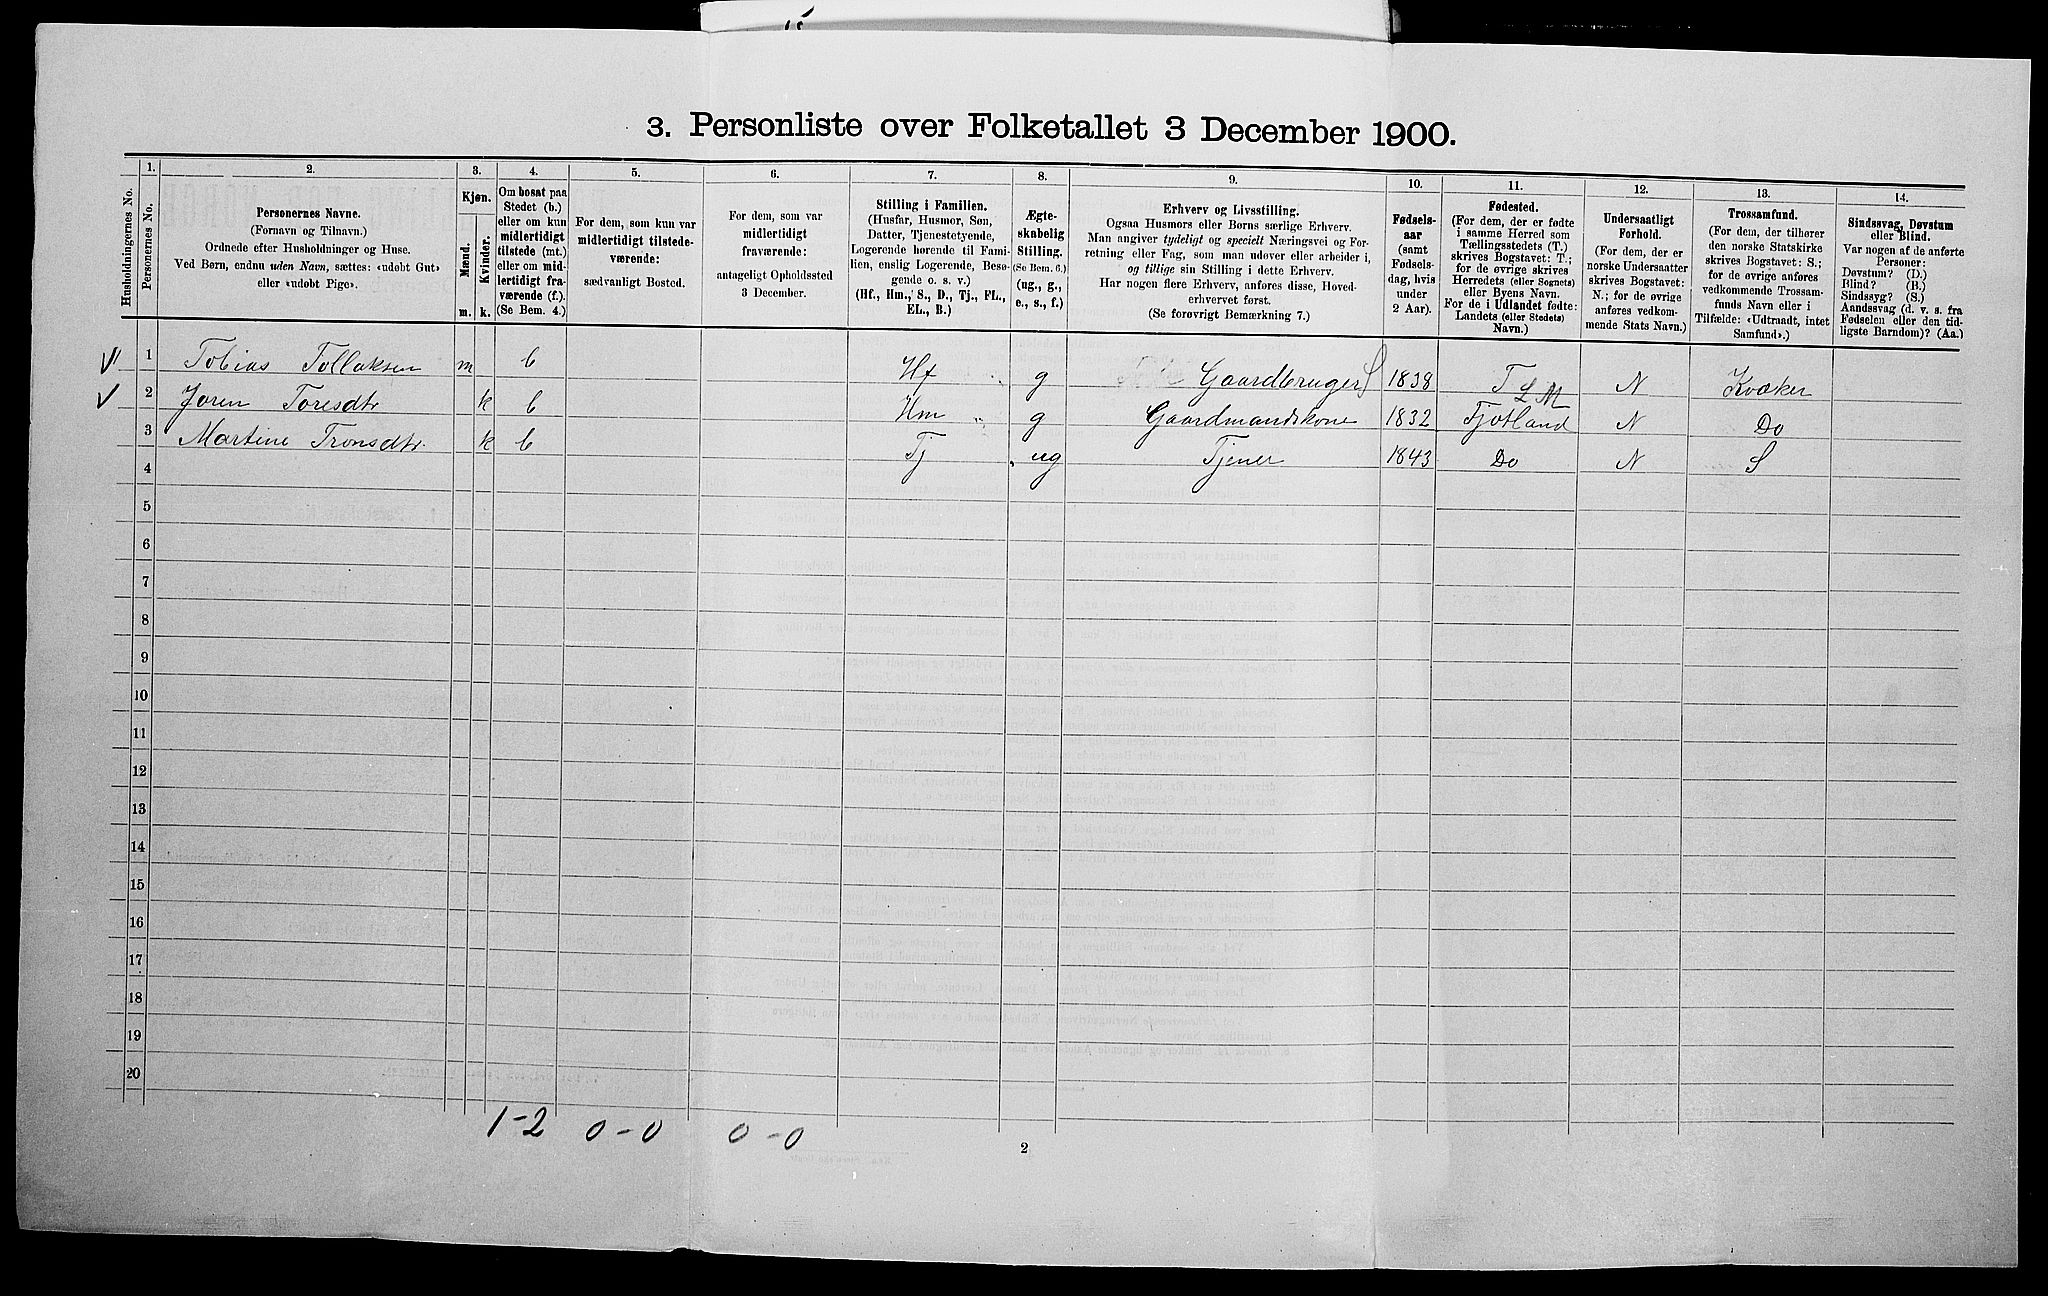 3. Personliste over Folketallet 3 December 1900.
Husholdningernes No.
1.
Personernes No.
2.
Personernes Navne.
(Fornavn og Tilnavn.)
Ordnede efter Husholdninger og Huse.
Ved Børn, endnu uden Navn, sættes: «udøbt Gut»
eller «udøbt Pige».
3.
Kjøn.
Mænd.
Kvinder.
m. k.
4.
Om bosat paa
Stedet (b.)
eller om kun
midlertidigt
tilstede (mt.)
eller om mid-
lertidigt fra-
værende (f.).
(Se Bem. 4.)
5.
For dem, som kun var
midlertidigt tilstede-
værende:
sædvanligt Bosted.
6.
For dem, som var
midlertidigt
fraværende:
antageligt Opholdssted
3 December.
7.
Stilling i Familien.
(Husfar, Husmor, Søn,
Datter, Tjenestetyende,
Logerende hørende til Fami-
lien, enslig Logerende, Besø-
gende o. s. v.)
(Hf., Hm., S., D., Tj., FL.,
EL., B.)
8.
Ægte-
skabelig
Stilling.
(Se Bem. 6.)
(ug., g.,
e., s., f.)
9.
Erhverv og Livsstilling.
Ogsaa Husmors eller Børns særlige Erhverv.
Man angiver tydeligt og specielt Næringsvei og For-
retning eller Fag, som man udover eller arbeider i,
og tillige sin Stilling i dette Erhverv.
Har nogen flere Erhverv, anføres disse, Hoved-
erhvervet først.
(Se forøvrigt Bemærkning 7.)
10.
Fødsels-
aar
(samt
Fødsels-
dag, hvis
under
2 Aar).
11.
Fødested.
(For dem, der er fødte
i samme Herred som
Tællingsstedets (T.)
skrives Bogstavet: T.;
for de øvrige skrives
Herredets (eller Sognets)
eller Byens Navn.
For de i Udlandet fødte:
Landets (eller Stedets)
Navn.)
12.
Undersaatligt
Forhold.
(For dem, der er
norske Undersaatter
skrives Bogstavet:
N.; for de øvrige
anføres vedkom-
mende Stats Navn.)
13.
Trossamfund.
(For dem, der tilhører
den norske Statskirke
skrives Bogstavet: S.;
for de øvrige anføres
vedkommende Trossam-
funds Navn eller i
Tilfælde: «Udtraadt, intet
Samfund».)
14.
Sindssvag, Døvstum
eller Blind.
Var nogen af de anførte
Personer:
Døvstum? (D.)
Blind? (B.)
Sindssyg? (S.)
Aandssvag (d. v. s. fra
Fødselen eller den tid-
ligste Barndom)? (Aa.)
V 1 Tobias Tollaksen m b Hf g Gaardbruger S 1838 T N Kvæker
L M
V 2 Joren Toresdtr k b Hm g Gaardmandskone 1832 Fjotland N Do
3 Martine Tronsdtr. k b Tj ug Tjener 1843 Do N S
4
5
6
7
8
9
10
11
12
13
14
15
16
17
18
19
20
1-2 0-0 0-0
2